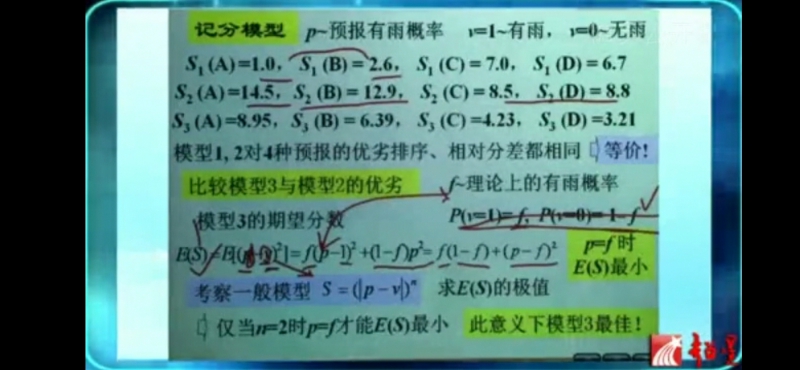 记分模型 p~预报有雨概率 v=1~有雨，v=0~无雨
S₁(A)=1.0，S₁(B)=2.6，S₁(C)=7.0，S₁(D)=6.7
S₂(A)=14.5，S₂(B)=12.9，S₂(C)=8.5，S₂(D)=8.8
S₃(A)=8.95，S₃(B)=6.39，S₃(C)=4.23，S₃(D)=3.21
模型1, 2对4种预报的优劣排序、相对分差都相同 等价!
比较模型3与模型2的优劣 f~理论上的有雨概率
模型3的期望分数 P(v=1)=f, P(v=0)=1-f
E(S)=E[(p-v)²]=f(p-1)²+(1-f)p²=f(1-f)+(p-f)² p=f时
E(S)最小
考察一般模型 S=(|p-v|)ⁿ 求E(S)的极值
仅当n=2时p=f才能E(S)最小 此意义下模型3最佳!